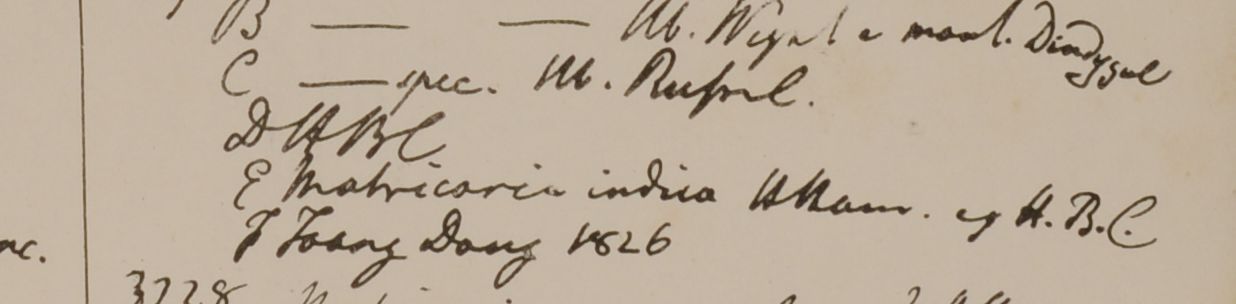 B — — Hb. Wight e mont. Dindygul
C — spec. Hb. Russel.
D HBC
E Matricaria indica HHam. ex H.B.C.
F Toong Dong 1826
nc.
3228